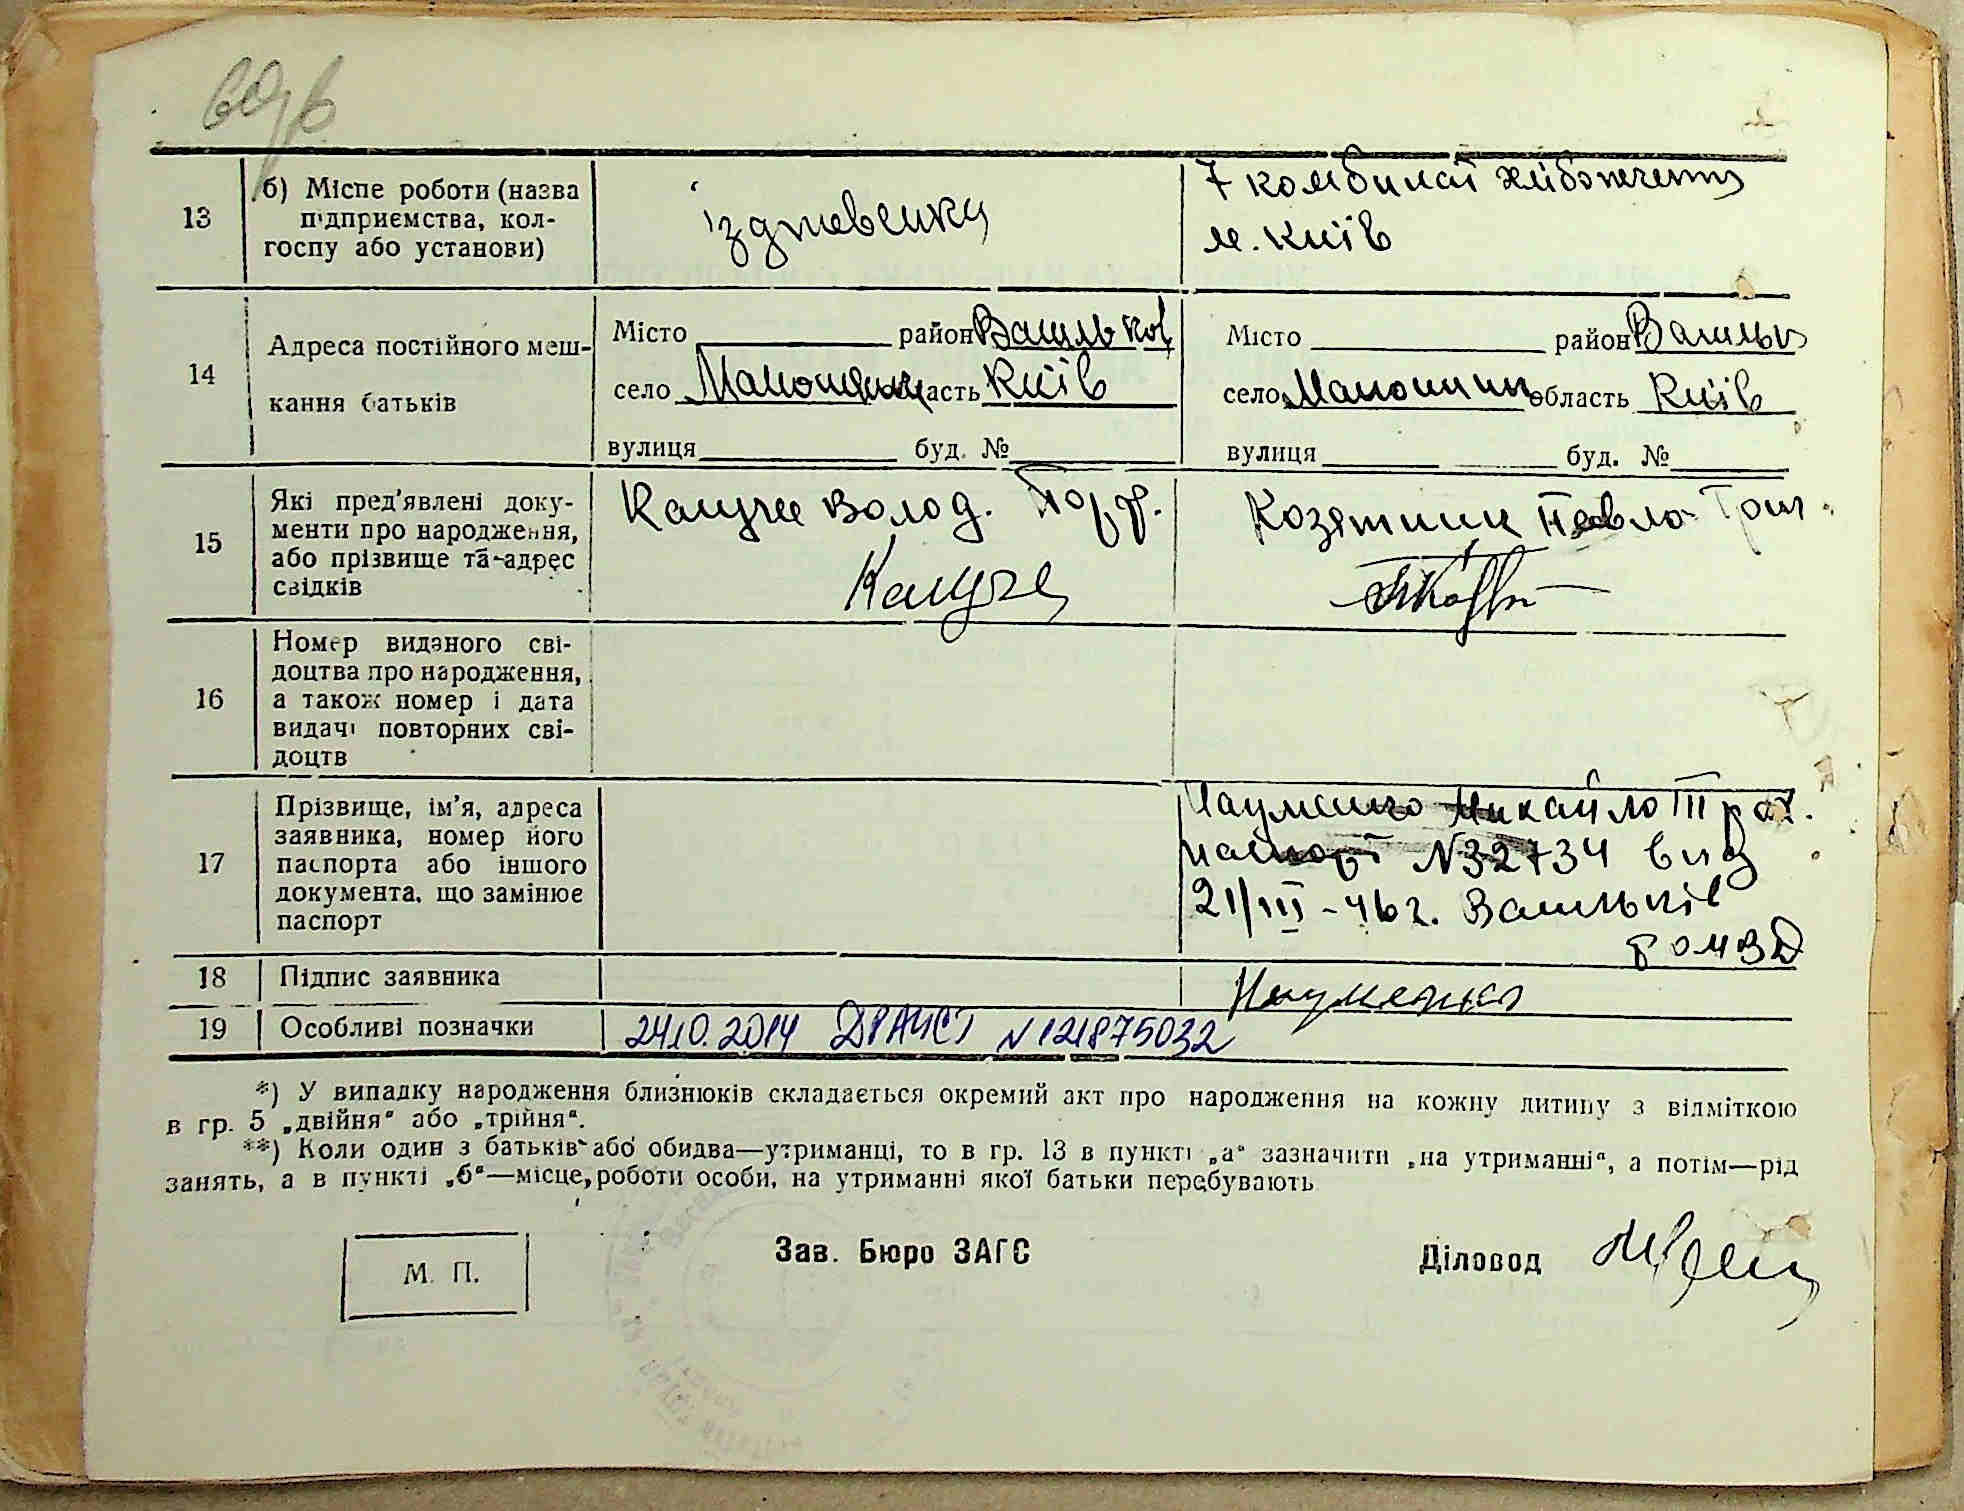 13
б) Місце роботи (назва
підприємства, кол-
госпу або установи)
7 комбинат
м. Київ
14
Адреса постійного меш-
кання батьків
Місто район Васильков
село область Київ
вулиця буд. №
Місто район Васильк
село область Київ
вулиця буд. №
15
Які пред'явлені доку-
менти про народження,
або прізвище та адрес
свідків
Волод.
Козятник Павло
16
Номер виданого сві-
доцтва про народження,
а також номер і дата
видачі повторних сві-
доцтв
17
Прізвище, ім'я, адреса
заявника, номер його
паспорта або іншого
документа, що замінює
паспорт
Науменко Михайло
паспорт N32734 вид
21/III-46 г. Васильків
РОМВД
18
Підпис заявника
Науменко
19
Особливі позначки
24.10.2014 ДРАЦСГ N121875032
*) У випадку народження близнюків складається окремий акт про народження на кожну дитину з відміткою
в гр. 5 „двійня" або „трійня".
**) Коли один з батьків або обидва—утриманці, то в гр. 13 в пункті „а" зазначити „на утриманні", а потім—рід
занять, а в пункті „б"—місце роботи особи, на утриманні якої батьки перебувають
М. П.
Зав. Бюро ЗАГС
Діловод